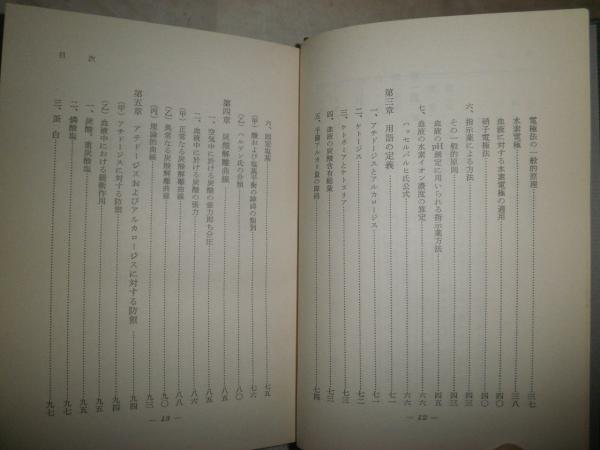 電極法の一般的原理………三七
水素電極………三八
血液に対する水素電極の適用………四〇
硝子電極法………四〇
六、指示薬による方法………四三
その一般的原則………四三
血液のpH測定に用いられる指示薬方法………四五
七、血液の水素イオン濃度の算定………六六
ハッセルバルヒ氏公式………六六
第三章 用語の定義………七一
一、アチドージスとアルカロージス………七一
二、ケトージス………七二
三、ケトネミアとケトヌリア………七三
四、血液の炭酸含有総量………七三
五、予備アルカリ量の障碍………七四
— 12 —
目次
六、固定塩基………七五
(甲) 酸および塩基平衡の障碍の類別………七六
(乙) ハルデン氏の分類………八〇
第四章 炭酸解離曲線………八五
一、空気中に於ける炭酸の張力即ち分圧………八五
二、血液中に於ける炭酸の張力………八六
(甲) 正常なる炭酸解離曲線………八八
(乙) 異常なる炭酸解離曲線………九〇
(丙) 理論的曲線………九三
第五章 アチドージスおよびアルカロージスに対する防禦………九四
(甲) アチドージスに対する防禦………九四
(乙) 血液中における緩衝作用………九五
一、炭酸、重炭酸塩………九五
二、燐酸塩………九七
三、蛋白………九七
— 13 —